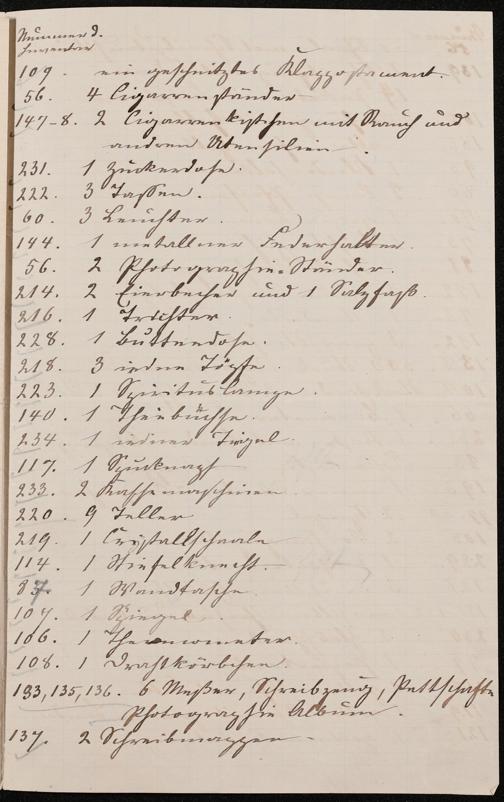 Nummer d.
Inventar
109. ein geschnitztes Klapppostament.
56. 4 Cigarrenständer
147-8. 2 Cigarrenkistchen mit Rauch und
andren Utensilien.
231. 1 Zuckerdose.
222. 3 Tassen.
60. 3 Leuchter.
144. 1 metallner Federhalter.
56. 2 Photographie-Ständer.
214. 2 Eierbecher und 1 Salzfaß.
216. 1 Trichter.
228. 1 Butterdose.
218. 3 irdne Töpfe.
223. 1 Spirituslampe.
140. 1 Theebüchse.
234. 1 irdner Tiegel.
117. 1 Spucknapf
233. 2 Kaffemaschinen.
220. 9 Teller
219. 1 Crystallschaale
114. 1 Stiefelknecht.
87. 1 Wandtasche
107. 1 Spiegel.
106. 1 Thermometer.
108. 1 Drahtkörbchen.
133, 135, 136. 6 Meßer, Schreibzeug, Pettschafte
Photographie Album.
137. 2 Schreibmappen.